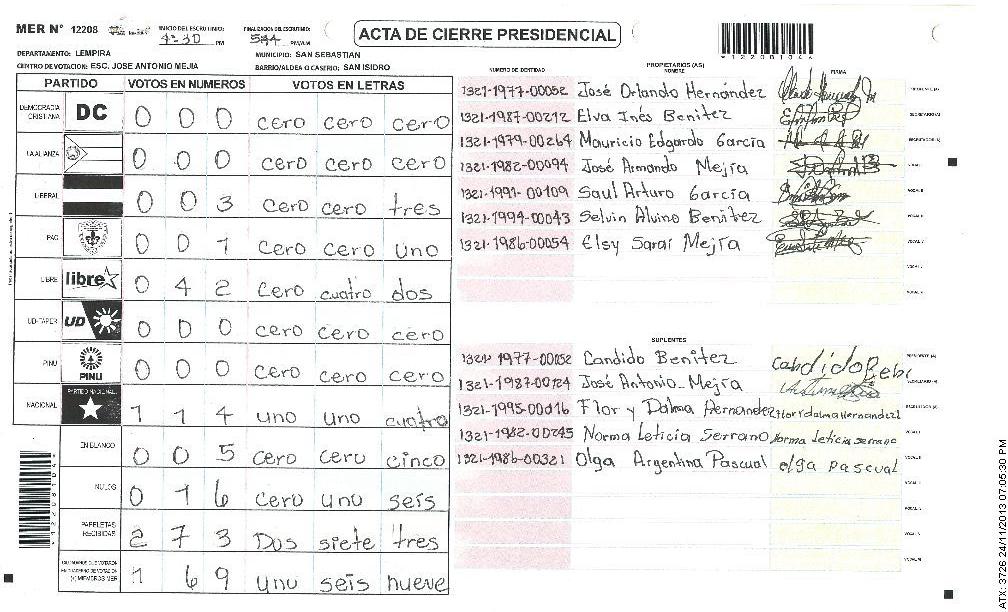 MER N° 12208
INICIO DEL ESCRUTINIO: 4:30 PM
FINALIZACION DEL ESCRUTINIO: PM/A.M
ACTA DE CIERRE PRESIDENCIAL
*1220B104*
DEPARTAMENTO: LEMPIRA
MUNICIPIO: SAN SEBASTIAN
CENTRO DE VOTACION: ESC. JOSE ANTONIO MEJIA
BARRIO/ALDEA O CASERIO: SAN ISIDRO
PARTIDO VOTOS EN NUMEROS VOTOS EN LETRAS
DEMOCRACIA CRISTIANA DC 0 0 0 cero cero cero
LA ALIANZA 0 0 0 cero cero cero
LIBERAL 0 0 3 cero cero tres
PAC 0 0 1 cero cero uno
LIBRE libre 0 4 2 cero cuatro dos
UD-FAPER UD 0 0 0 cero cero cero
PINU PINU 0 0 0 cero cero cero
NACIONAL PARTIDO NACIONAL 1 1 4 uno uno cuatro
EN BLANCO 0 0 5 cero cero cinco
NULOS 0 1 6 cero uno seis
PAPELETAS RECIBIDAS 2 7 3 Dos siete tres
CIUDADANOS QUE VOTARON EN CUADERNO DE VOTACION (+) MIEMBROS MER 1 6 9 uno seis nueve
PROPIETARIOS (AS)
NUMERO DE IDENTIDAD NOMBRE FIRMA
1321-1977-00052 José Orlando Hernández PRESIDENTE (A)
1321-1987-00212 Elva Inés Benitez SECRETARIO (A)
1321-1979-00264 Mauricio Edgardo García ESCRUTADOR (A)
1321-1982-00094 José Armando Mejía VOCAL I
1321-1991-00109 Saul Arturo García VOCAL II
1321-1994-00043 Selvin Alvino Benitez VOCAL III
1321-1986-00054 Elsy Sarai Mejía VOCAL IV
VOCAL V
VOCAL VI
SUPLENTES
1321-1977-00052 Candido Benitez PRESIDENTE (A)
1321-1987-00124 José Antonio Mejía SECRETARIO (A)
1321-1995-00016 Flor y Dalma Hernandez Flor y dalma Hernandez ESCRUTADOR (A)
1321-1982-00245 Norma Leticia Serrano Norma Leticia serrano VOCAL I
1321-1986-00321 Olga Argentina Pascual olga pascual VOCAL II
VOCAL III
VOCAL IV
VOCAL V
VOCAL VI
ATX: 3726 24/11/2013 07:05:30 PM